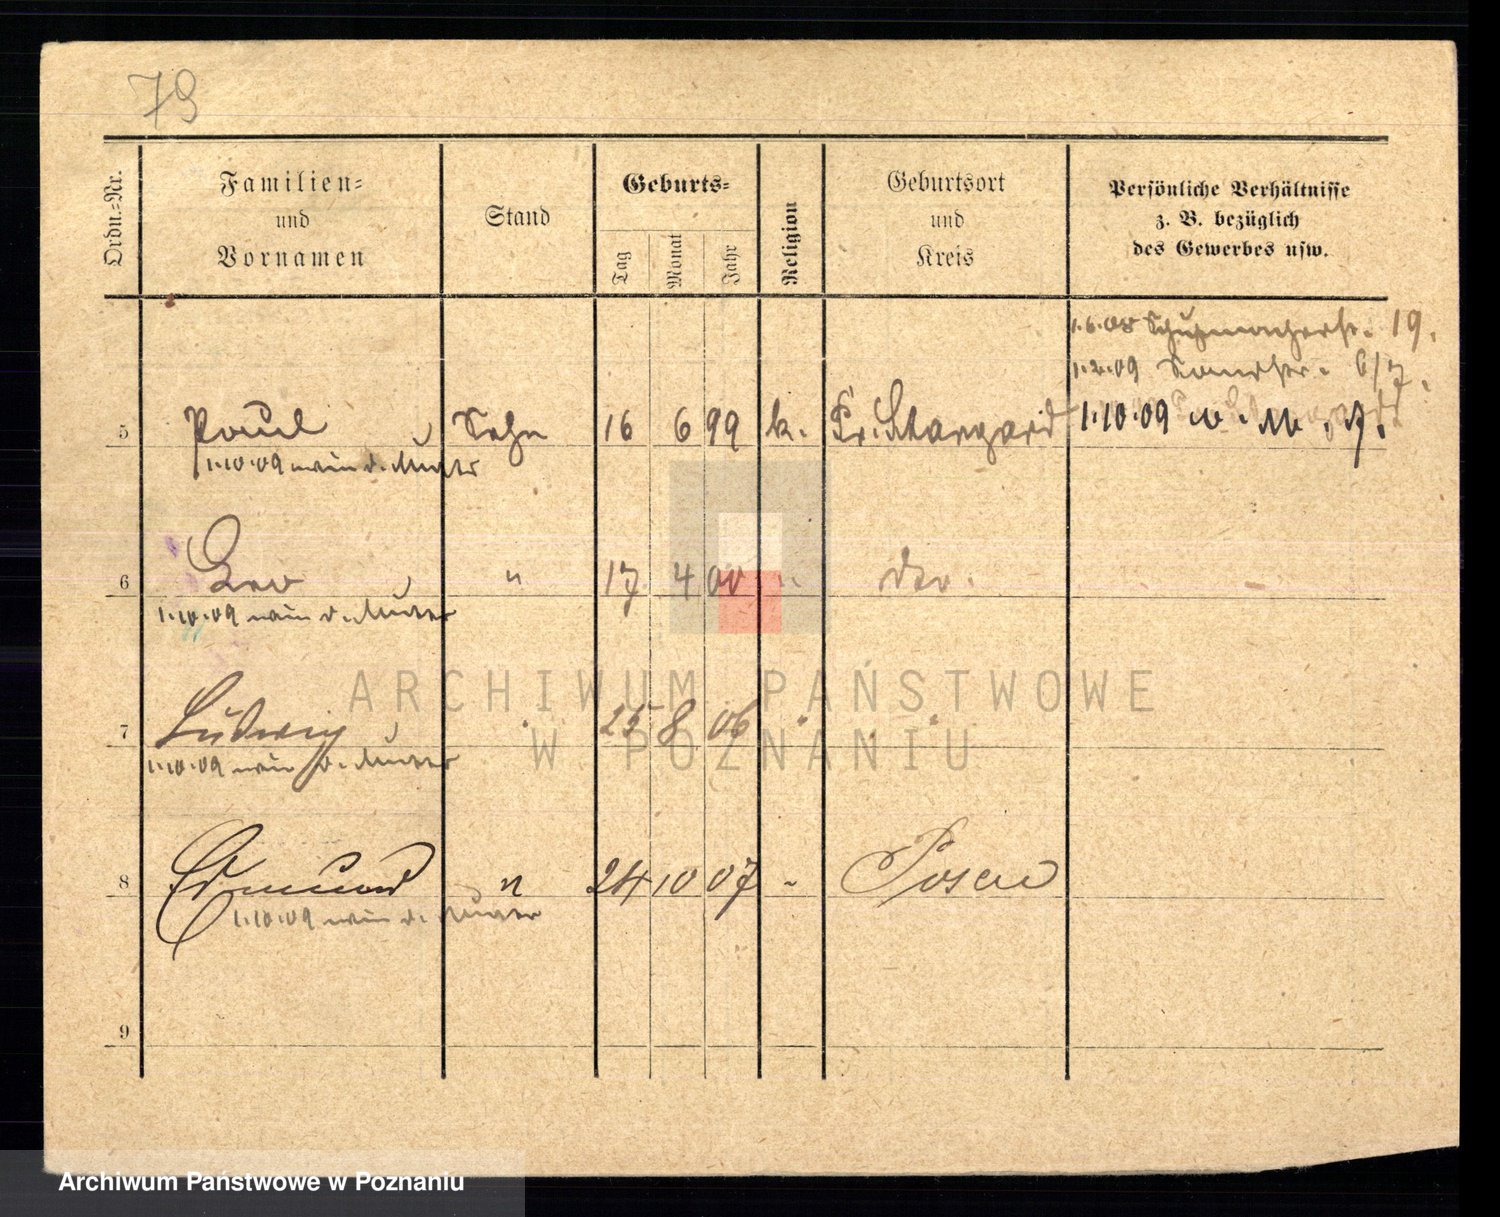 79
Ordn.-Nr.
Familien-
und
Vornamen
Stand
Geburts-
Tag
Monat
Jahr
Religion
Geburtsort
und
Kreis
Persönliche Verhältnisse
z. B. bezüglich
des Gewerbes usw.
1.6.08 Schuhmacherstr. 19.
1.2.09 6/7.
5 Paul Sohn 16 6 99 k. Pr. Stargard 1.10.09 w. M. J.
1.10.09 d. Mutter
6 Leo " 17 4 00 " do.
1.10.09 d. Mutter
7 Ludwig " 25 8 06 " "
1.10.09 d. Mutter
8 Edmund " 24 10 07 " Posen
1.10.09 d. Mutter
9
ARCHIWUM PAŃSTWOWE
W POZNANIU
Archiwum Państwowe w Poznaniu